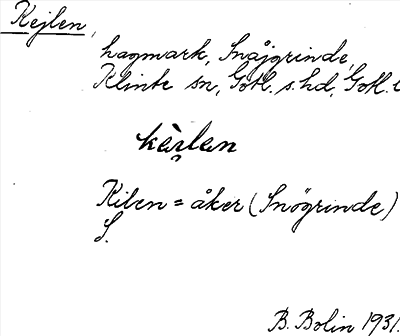 Kejlen,
hagmark, Snåjgrinde,
Klinte sn, Gotl. s. hd, Gotl. l
kèi̯len
Kilen = åker (Snögrinde)
S.
B. Bolin 1931.